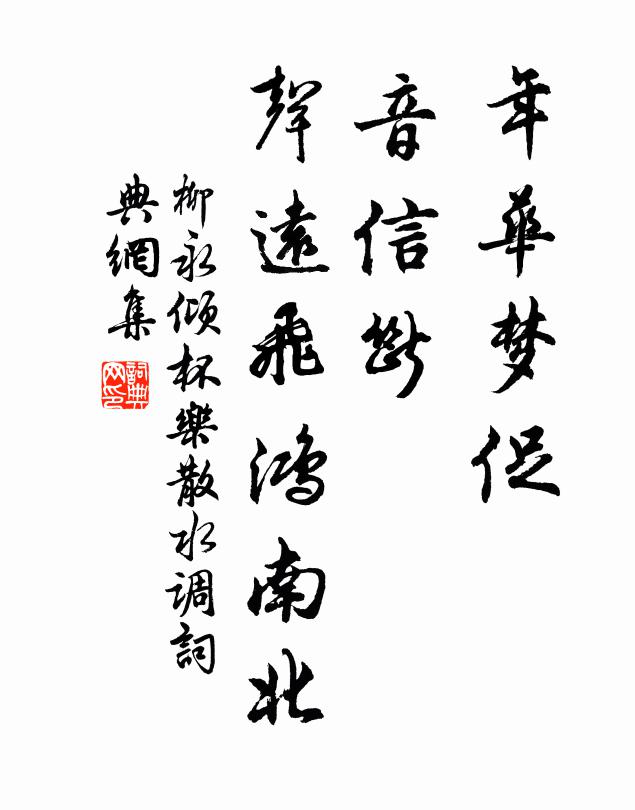 年華梦促
音信断
聲遠飛鴻南北
柳永傾杯樂散水调詞
典網集
詞典网印